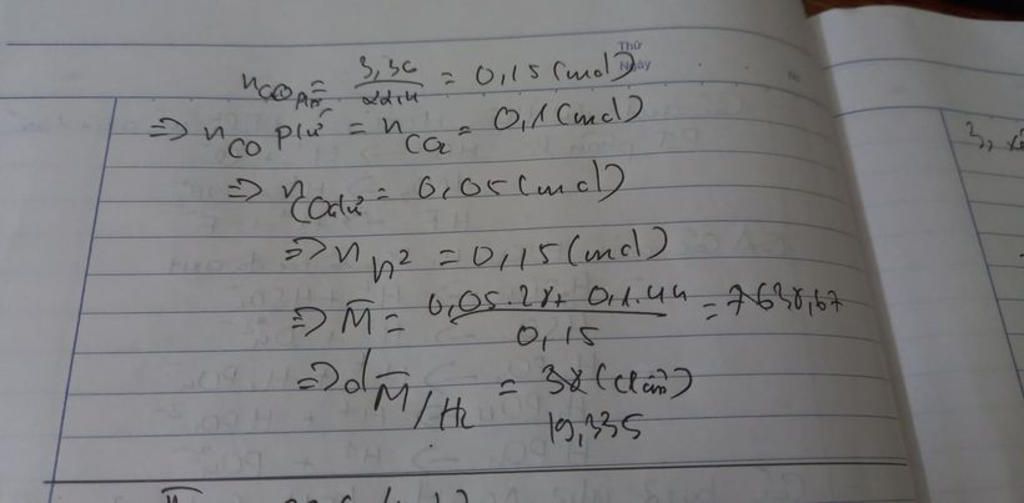 Thứ
Ngày
nCO = 3,36 / 22,4 = 0,15 (mol)
=> nCO pứ = nCO2 = 0,1 (mol)
=> nCO dư = 0,05 (mol)
=> n h2 = 0,15 (mol)
=> M̅ = 0,05.28 + 0,1.44 / 0,15 = 38,67
=> d M̅/H2 = (lần)
19,335
3,